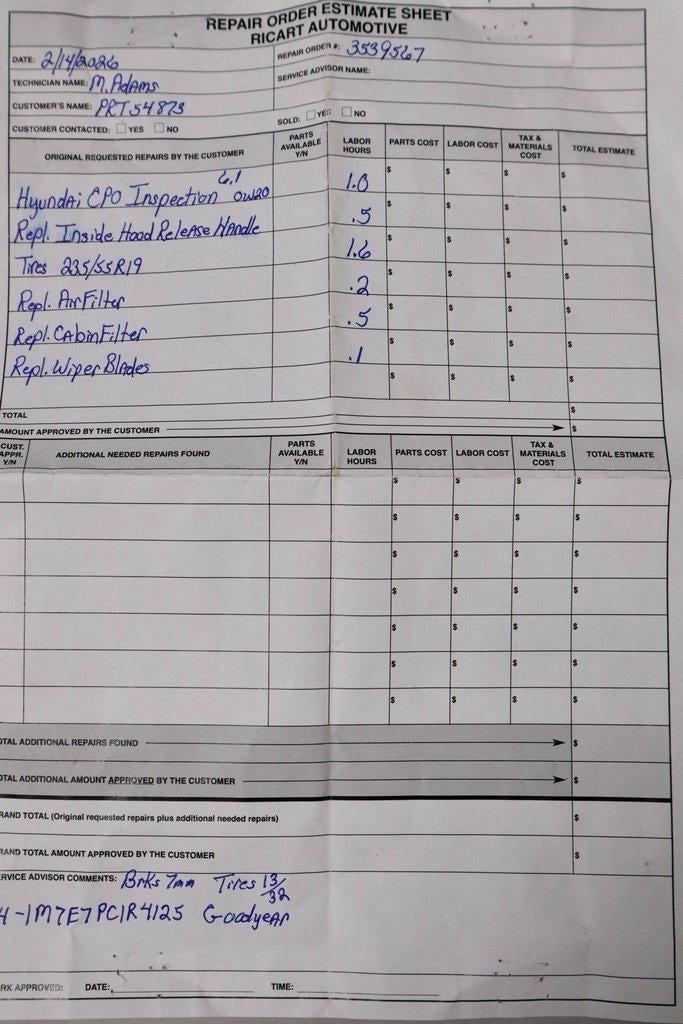 REPAIR ORDER ESTIMATE SHEET
RICART AUTOMOTIVE
DATE: 2/14/2026
REPAIR ORDER #: 3539567
TECHNICIAN NAME: M. Adams
SERVICE ADVISOR NAME:
CUSTOMER'S NAME: PRT54873
CUSTOMER CONTACTED: YES NO
SOLD: YES NO
ORIGINAL REQUESTED REPAIRS BY THE CUSTOMER PARTS AVAILABLE Y/N LABOR HOURS PARTS COST LABOR COST TAX & MATERIALS COST TOTAL ESTIMATE
6.1
Hyundai CPO Inspection 0W20 1.0 $ $ $ $
Repl. Inside Hood Release Handle .5 $ $ $ $
Tires 235/55R19 1.6 $ $ $ $
Repl. Air Filter .2 $ $ $ $
Repl. Cabin Filter .5 $ $ $ $
Repl. Wiper Blades .1 $ $ $ $
$ $ $ $
TOTAL $
AMOUNT APPROVED BY THE CUSTOMER $
CUST. APPR. Y/N ADDITIONAL NEEDED REPAIRS FOUND PARTS AVAILABLE Y/N LABOR HOURS PARTS COST LABOR COST TAX & MATERIALS COST TOTAL ESTIMATE
$ $ $ $
$ $ $ $
$ $ $ $
$ $ $ $
$ $ $ $
$ $ $ $
$ $ $ $
OTAL ADDITIONAL REPAIRS FOUND $
OTAL ADDITIONAL AMOUNT APPROVED BY THE CUSTOMER $
RAND TOTAL (Original requested repairs plus additional needed repairs) $
RAND TOTAL AMOUNT APPROVED BY THE CUSTOMER $
RVICE ADVISOR COMMENTS: Brks 7mm Tires 13/32
4-1M7E7PC1R4125 Goodyear
RK APPROVED: DATE: TIME: